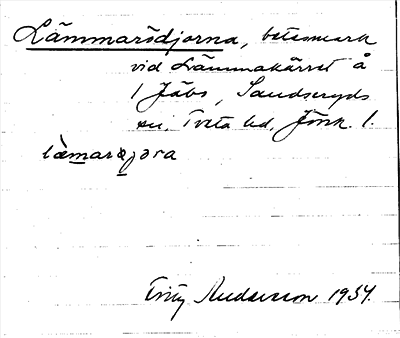 Lämmarsdjorna, betesmark
vid Lämmakärret å
1 Jäbs, Sandseryds
sn, Tveta hd, Jönk. l.
làmarsjora
Frity Andersson 1934.